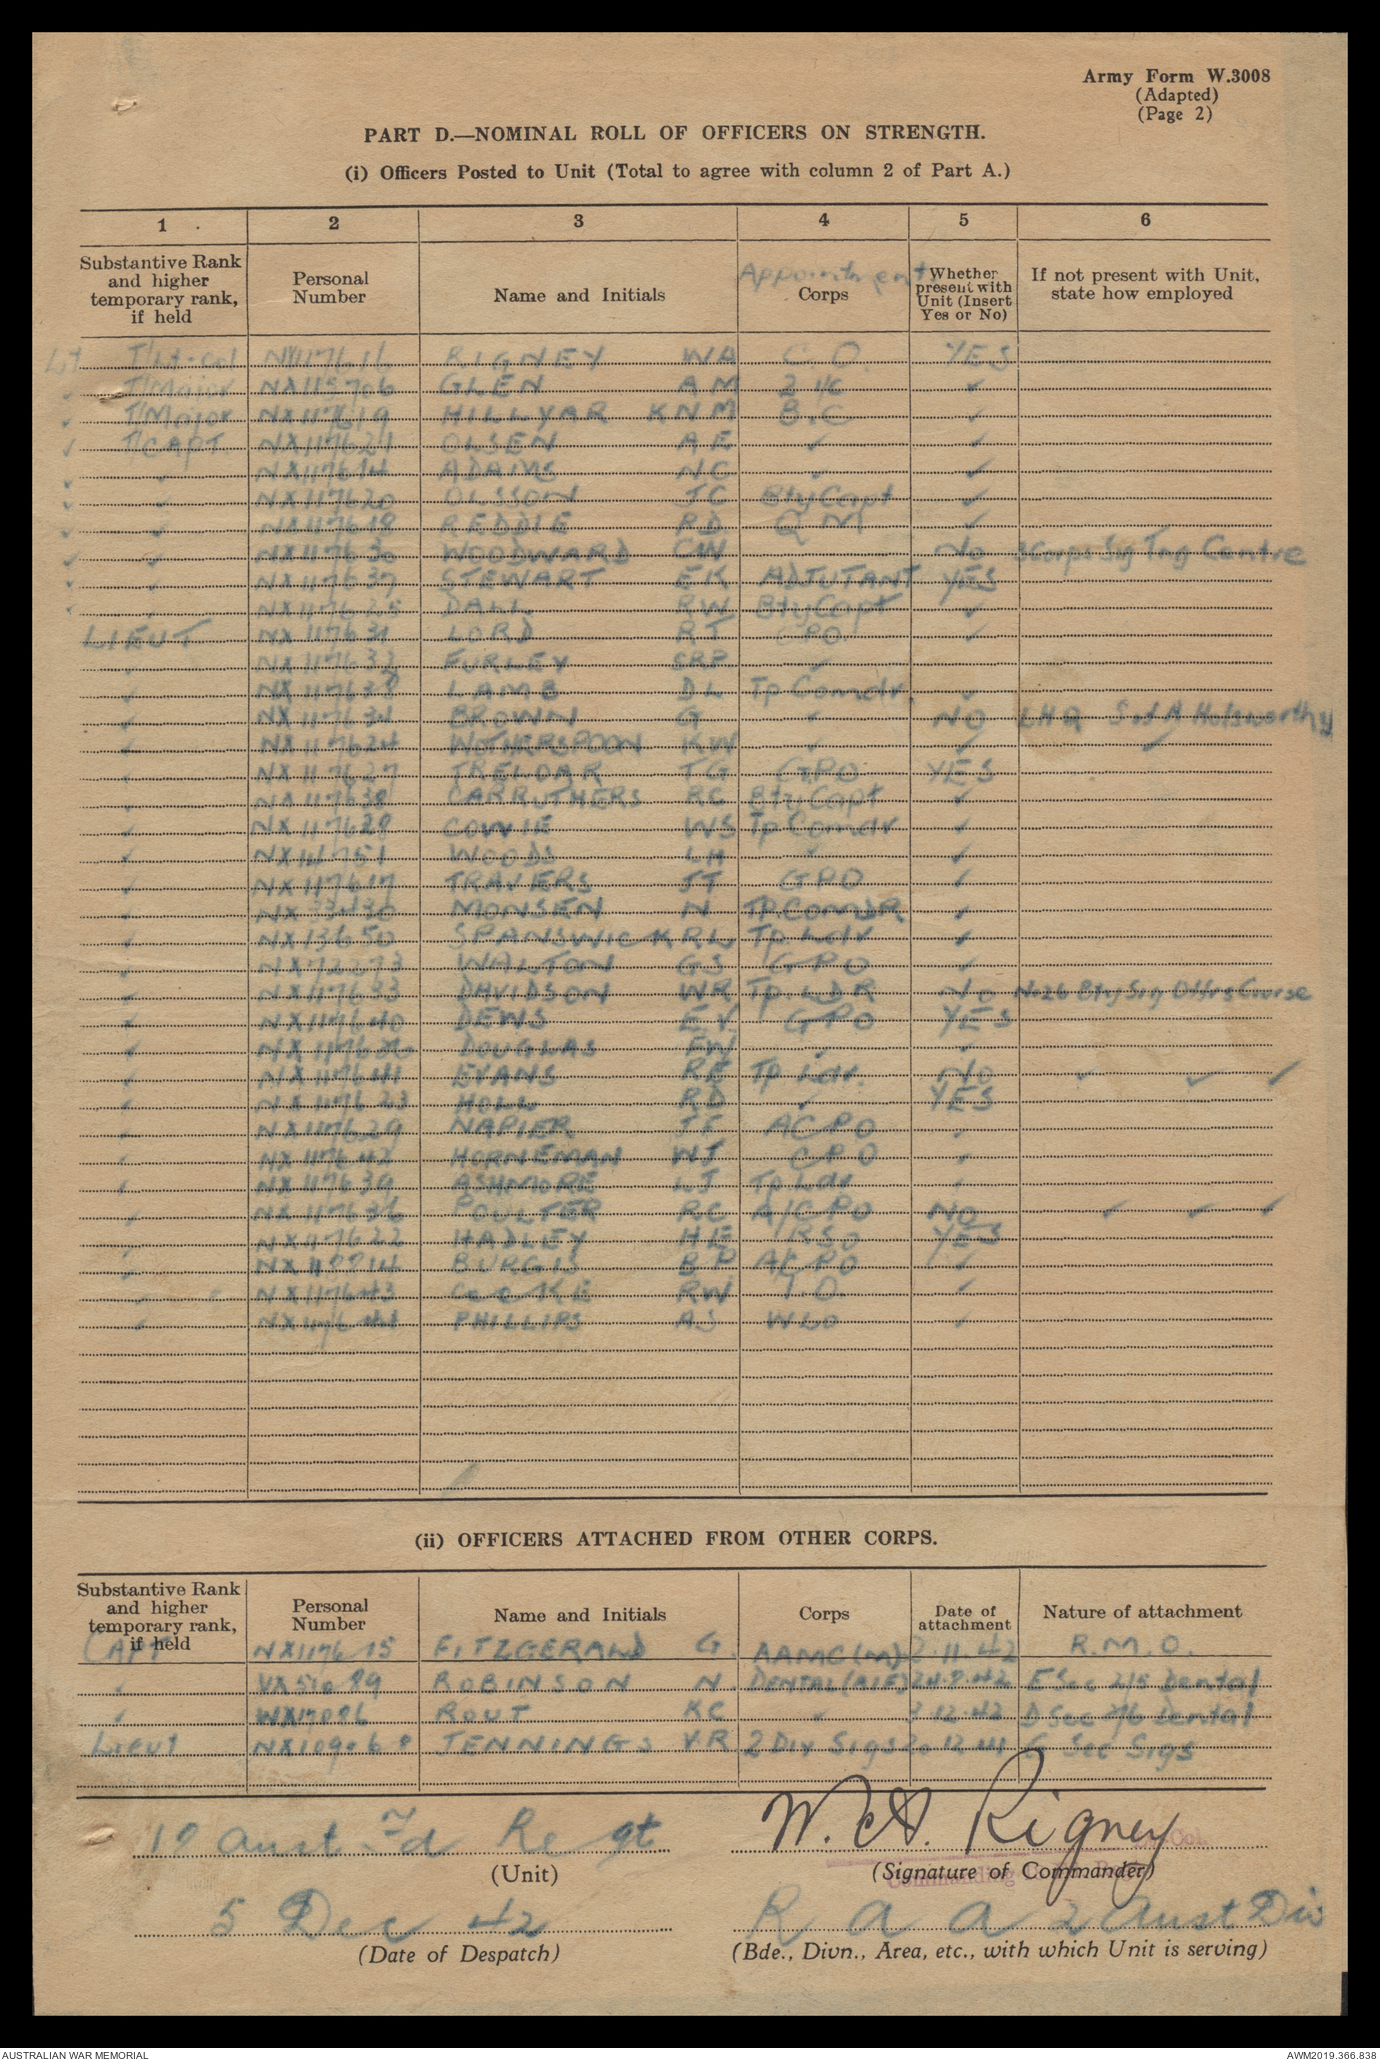 Army Form W.3008
(Adapted)
(Page 2)
PART D.—NOMINAL ROLL OF OFFICERS ON STRENGTH.
(i) Officers Posted to Unit (Total to agree with column 2 of Part A.)
1 2 3 4 5 6
Substantive Rank and higher temporary rank, if held | Personal Number | Name and Initials | Appointment Corps | Whether present with Unit (Insert Yes or No) | If not present with Unit, state how employed
T/Lt-Col NX117611 RIGNEY WA C.O. YES
T/Major NX115706 GLEN AM 2 i/c ✓
T/Major NX117619 HILLYAR KNM B.C ✓
T/CAPT NX117621 OLSEN AE ✓ ✓
✓ NX117614 ADAMS NC ✓ ✓
✓ NX117620 OLSSON JC Bty Capt ✓
✓ NX117618 REDDIE RD QM ✓
✓ NX117630 WOODWARD CW No Corps Sig Tng Centre
✓ NX117637 STEWART EK ADJUTANT YES
✓ NX117625 DALL RW Bty Capt ✓
LIEUT NX117631 LORD RT CPO ✓
✓ FURLEY SRP ✓
✓ LAMB DL Tp Comdr. ✓
✓ NX117634 BROWN G ✓ NO LHQ S of A Holsworthy
✓ NX117624 WOTHERSPOON KW ✓ ✓ ✓
✓ NX117627 TRELOAR TG GPO YES
✓ CARRUTHERS RC Bty Capt ✓
✓ COWIE WS Tp Comdr ✓
✓ WOODS LH ✓ ✓
✓ NX117617 TRAVERS JT GPO ✓
✓ MONSEN N TP COMDR ✓
✓ NX13650 SPANSWICK RL Tp Ldr ✓
✓ NX72273 WALTON GS GPO ✓
✓ NX117633 DAVIDSON WR Tp LDR No No 26 Bty Sig Offrs Course
✓ NX117640 DEWS EV GPO YES
✓ DOUGLAS FW ✓ ✓
✓ NX117641 EVANS RE Tp Ldr. No ✓ ✓ ✓
✓ NX117623 HOLL RD ✓ YES
✓ NX117629 NAPIER ACPO ✓
✓ NX117642 HORNEMAN WJ CPO ✓
✓ NX117639 ASHMORE LJ Tp Ldr ✓
✓ NX117636 POULTER RC A/CPO NO ✓ ✓ ✓
✓ NX117622 HADLEY HE RSO YES
✓ BURGIS BP A/CPO ✓
✓ NX117643 RW T.O. ✓
✓ PHILLIPS AJ WLO ✓
(ii) OFFICERS ATTACHED FROM OTHER CORPS.
Substantive Rank and higher temporary rank, if held | Personal Number | Name and Initials | Corps | Date of attachment | Nature of attachment
CAPT NX117615 FITZGERALD G. AAMC (M) 2.11.42 R.M.O.
✓ VX51089 ROBINSON N. DENTAL (AIF) 24.8.42 E Sec 2/5 Dental
✓ WX17086 ROUT KC ✓ 12.42 D Sec 2/6 Dental
Lieut JENNINGS VR 2 Div Sigs Sec Sigs
Aust Fd Regt
(Unit)
W. A. Rigney
Lt-Col.
Commanding
(Signature of Commander)
5 Dec 42
(Date of Despatch)
R A A 2 Aust Div
(Bde., Divn., Area, etc., with which Unit is serving)
AUSTRALIAN WAR MEMORIAL
AWM2019.366.838